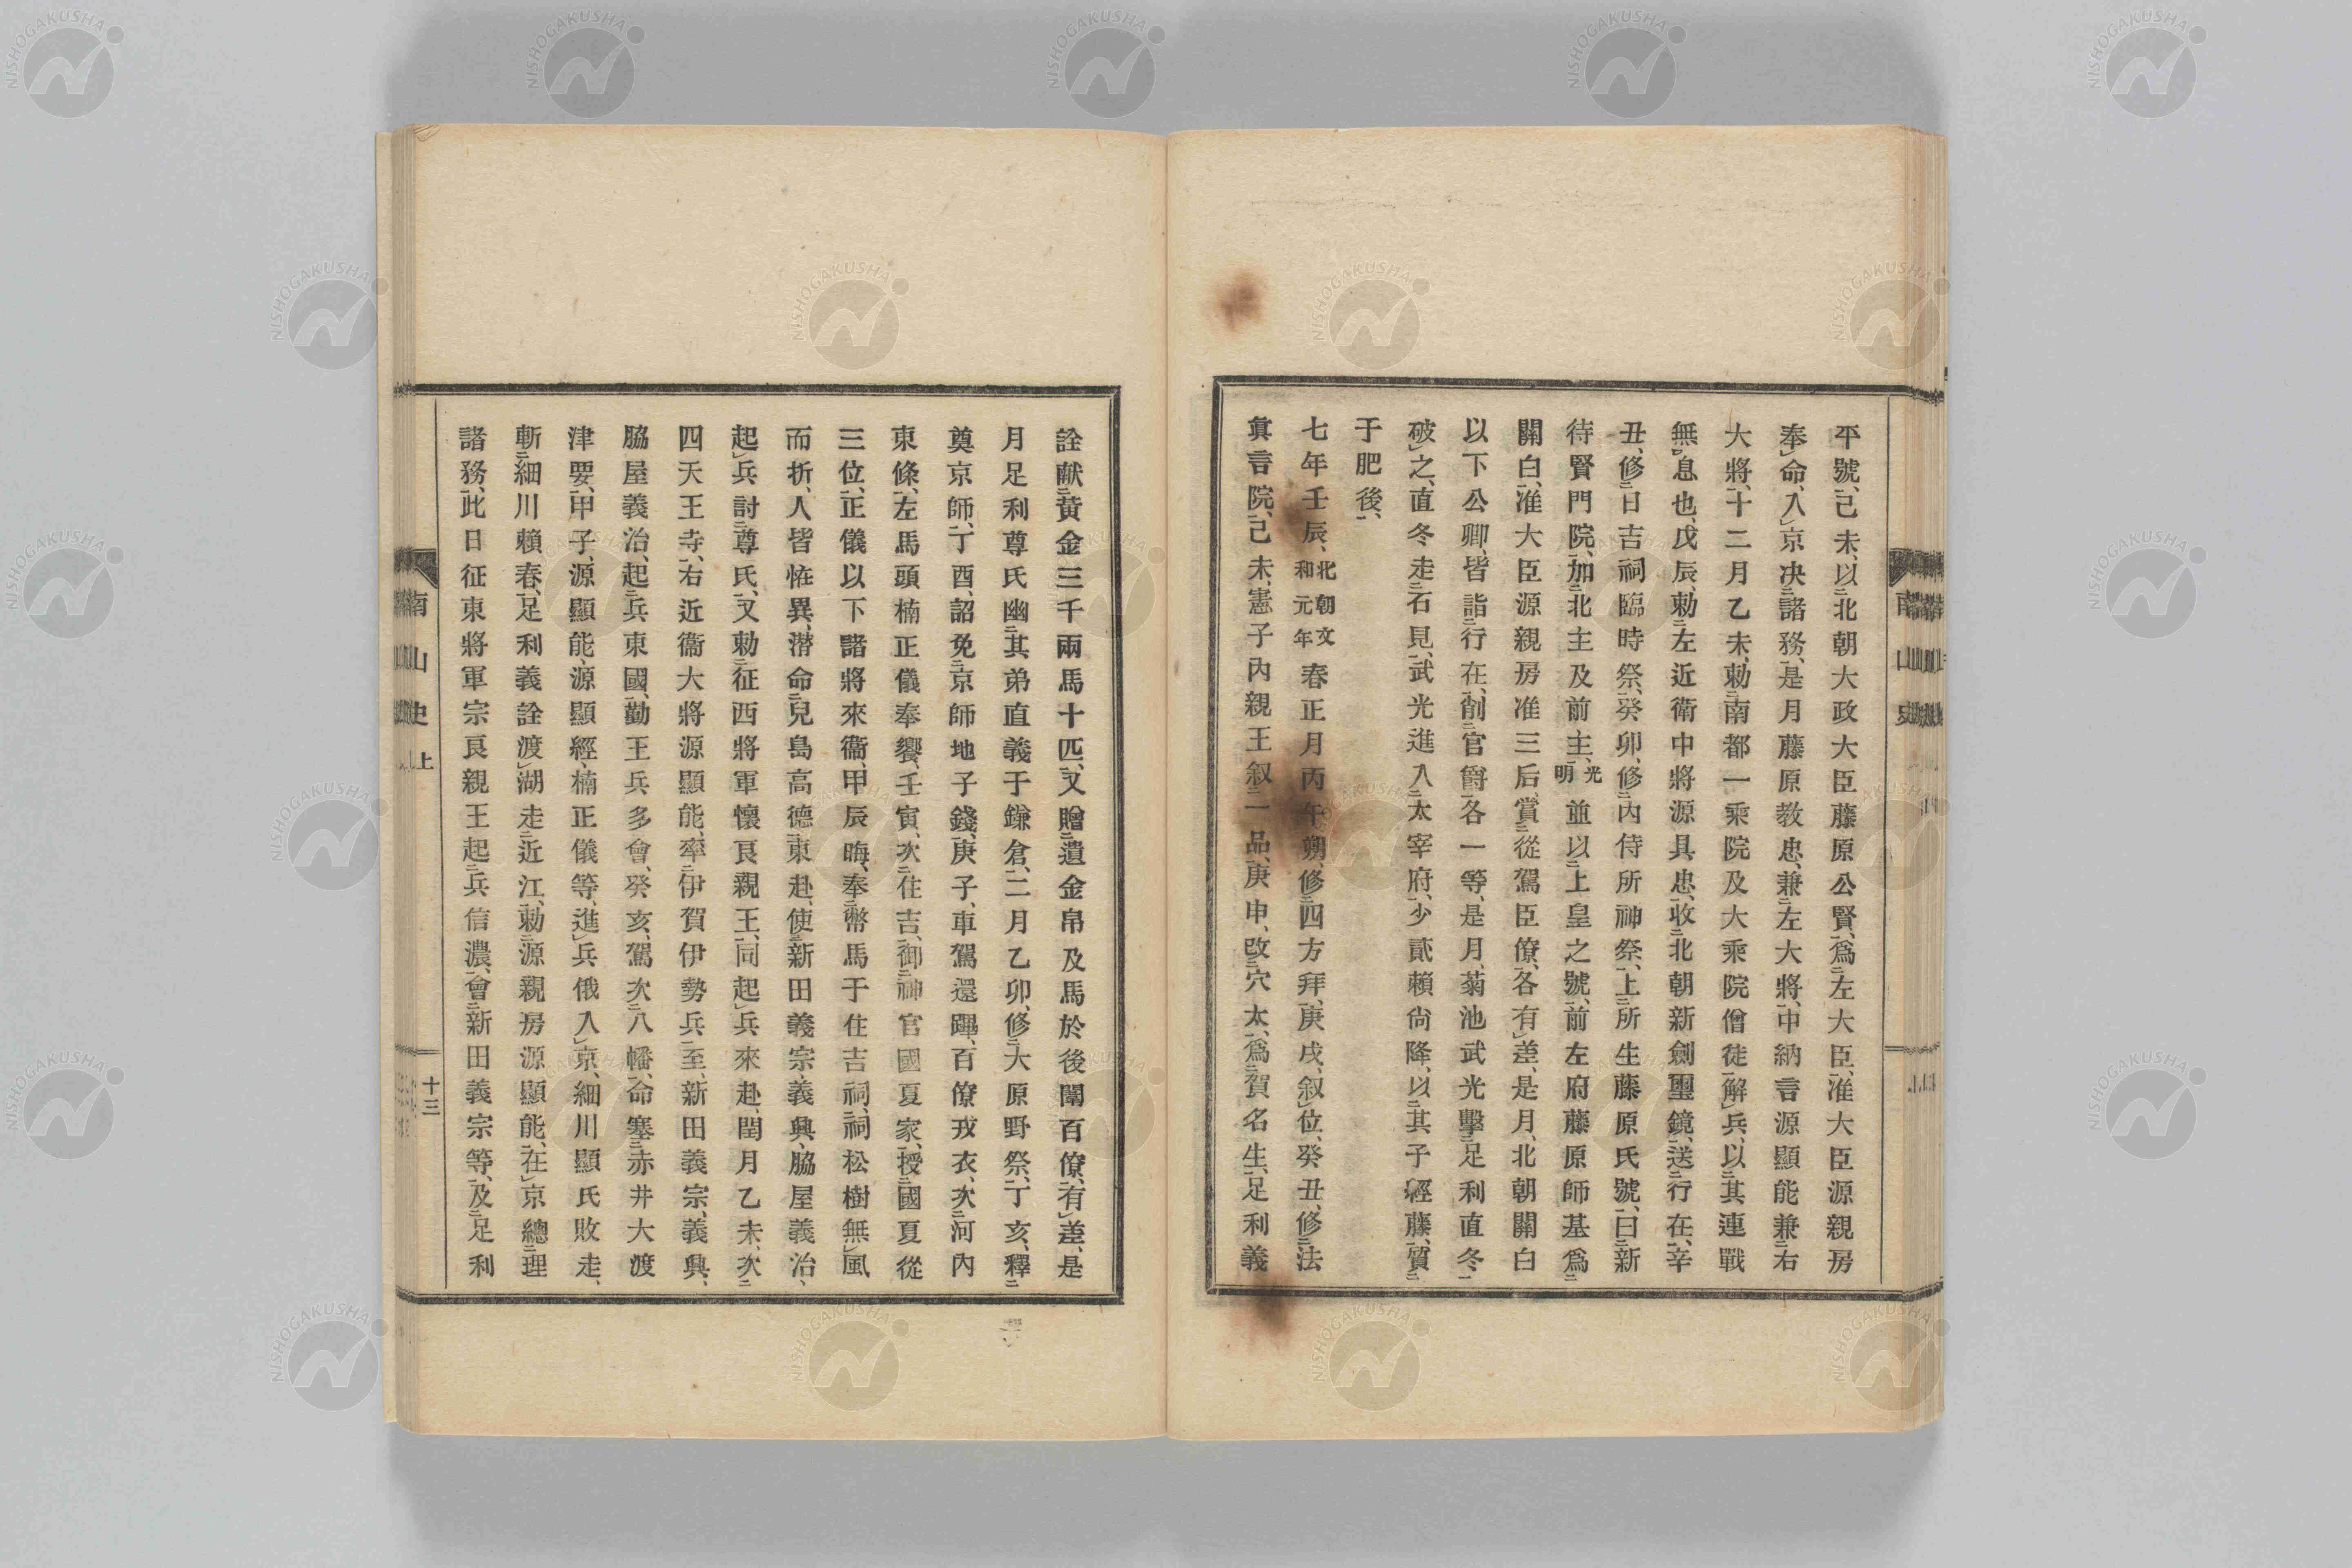 平號、己未、以北朝大政大臣藤原公賢、爲左大臣、准大臣源親房
奉命、入京決諸務、是月藤原教忠、兼左大將、中納言源顯能兼右
大將、十二月乙未、勅南都一乘院及大乘院僧徒、解兵、以其連戰
無息也、戊辰、勅左近衛中將源具忠、收北朝新劍璽鏡、送行在、辛
丑、修日吉祠臨時祭、癸卯、修內侍所神祭、上所生藤原氏號、曰新
待賢門院、加北主及前主、光明並以上皇之號、前左府藤原師基爲
關白、准大臣源親房准三后、賞從駕臣僚、各有差、是月、北朝關白
以下公卿、皆詣行在、削官爵各一等、是月、菊池武光擊足利直冬
破之、直冬走石見、武光進入太宰府、少貳賴尙降、以其子經藤、質
于肥後、
七年壬辰、北朝文和元年春正月丙午朔、修四方拜、庚戌、叙位、癸丑、修法
眞言院、己未、憲子內親王叙一品、庚申、改穴太、爲賀名生、足利義
詮献黃金三千兩馬十匹、又贈遺金帛及馬於後闈百僚、有差、是
月足利尊氏幽其弟直義于鎌倉、二月乙卯、修大原野祭、丁亥、釋
奠京師、丁酉、詔免京師地子錢、庚子、車駕還蹕、百僚戎衣、次河內
東條、左馬頭楠正儀奉饗、壬寅、次住吉、御神官國夏家、授國夏從
三位、正儀以下諸將來衞、甲辰晦、奉幣馬于住吉祠、祠松樹無風
而折、人皆恠異、潜命兒島高德、東赴、使新田義宗、義興、脇屋義治、
起兵討尊氏、又勅征西將軍懷良親王、同起兵來赴、閏月乙未、次
四天王寺、右近衞大將源顯能、率伊賀伊勢兵、至、新田義宗、義興、
脇屋義治、起兵東國、勤王兵多會、癸亥、駕次八幡、命塞赤井大渡
津要、甲子、源顯能、源顯經、楠正儀等、進兵俄入京、細川顯氏敗走、
斬細川賴春、足利義詮渡湖走近江、勅源親房源顯能、在京總理
諸務、此日征東將軍宗良親王起兵信濃、會新田義宗等、及足利
南山史 上
十三